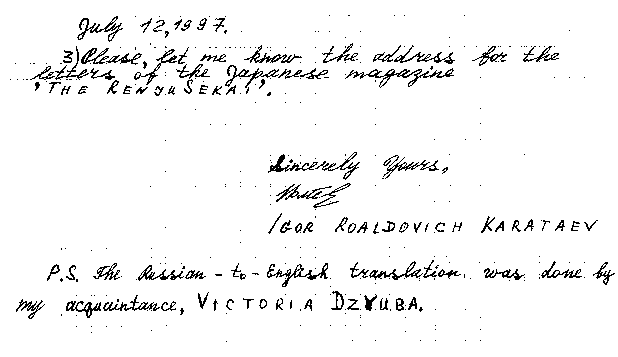 July 12, 1997.
3) Please, let me know the address for the
letters of the Japanese magazine
"THE RENJU SEKAI".
Sincerely Yours,
IGOR ROALDOVICH KARATAEV
P.S. The Russian-to-English translation was done by
my acquaintance, VICTORIA DZYUBA.